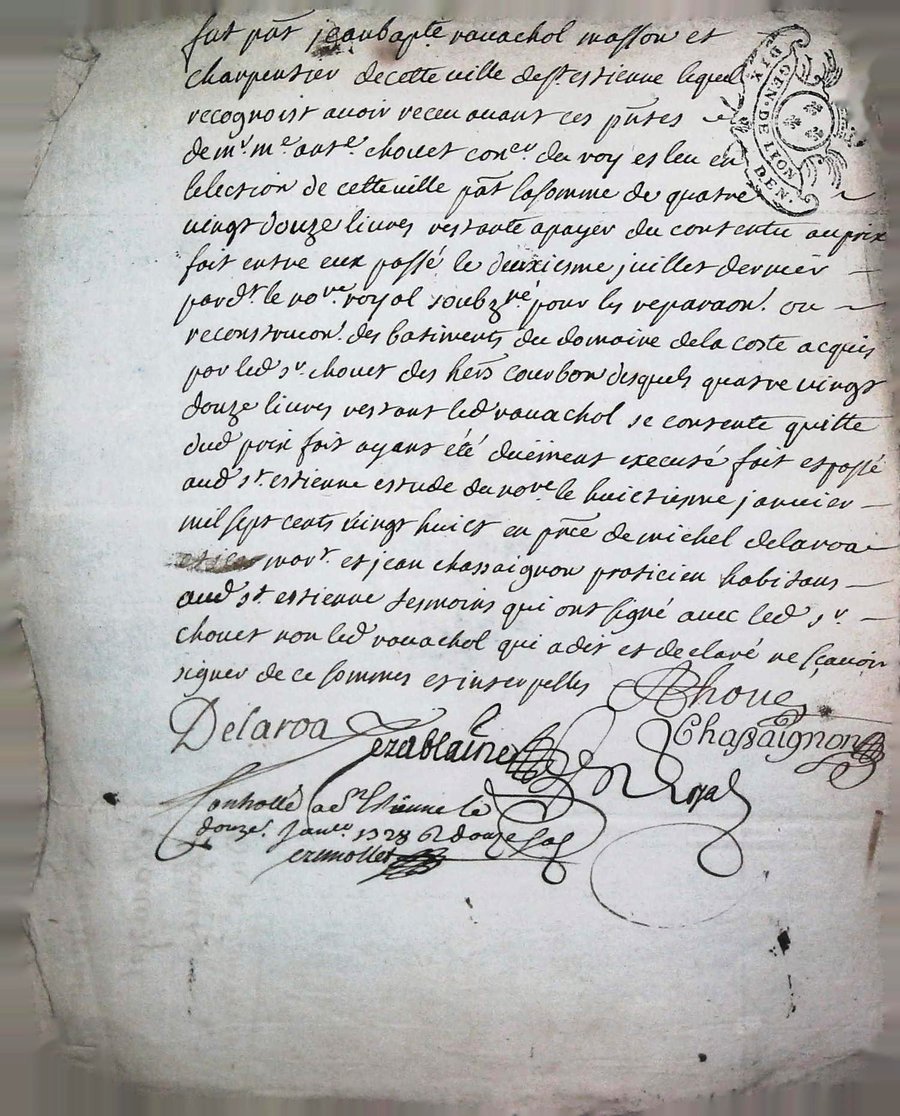 fut pñt jean bapte ravachol masson et
charpentier de cette ville de st estienne lequel
recognoist avoir receu avant ces pñtes
de mr me ante chovet coner du roy esleu en
lelection de cette ville pñt la somme de quatre
vingt douze livres restante a payer du contenu au prix
fait entre eux passé le deuxiesme juillet dernier
pardt le nore royal soubzné pour les reparaon ou
reconstrucon des batiments du domaine de la coste acquis
par led sr chovet des hers courbon desquels quatre vingt
douze livres restant led ravachol se contente quitte
dud prix fait ayant été duëment executé fait et passé
aud st estienne estude du nore le huictieme janvier
mil sept cents vingt huict en pñce de michel delaroa
mart et jean chassaignon praticien habitans
aud st estienne tesmoins qui ont signé avec led sr
chovet non led ravachol qui a dit et declaré ne sçavoir
signer de ce sommés et interpellés
Chovet
Delaroa
Chassaignon
Royal
Controllé a St Estienne le
douze Janvr 1728 douze sols
DIX
GEN. DE LION
DEN.